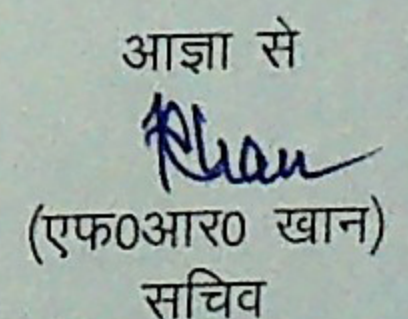 आज्ञा से
Khan
(एफ0आर0 खान)
सचिव